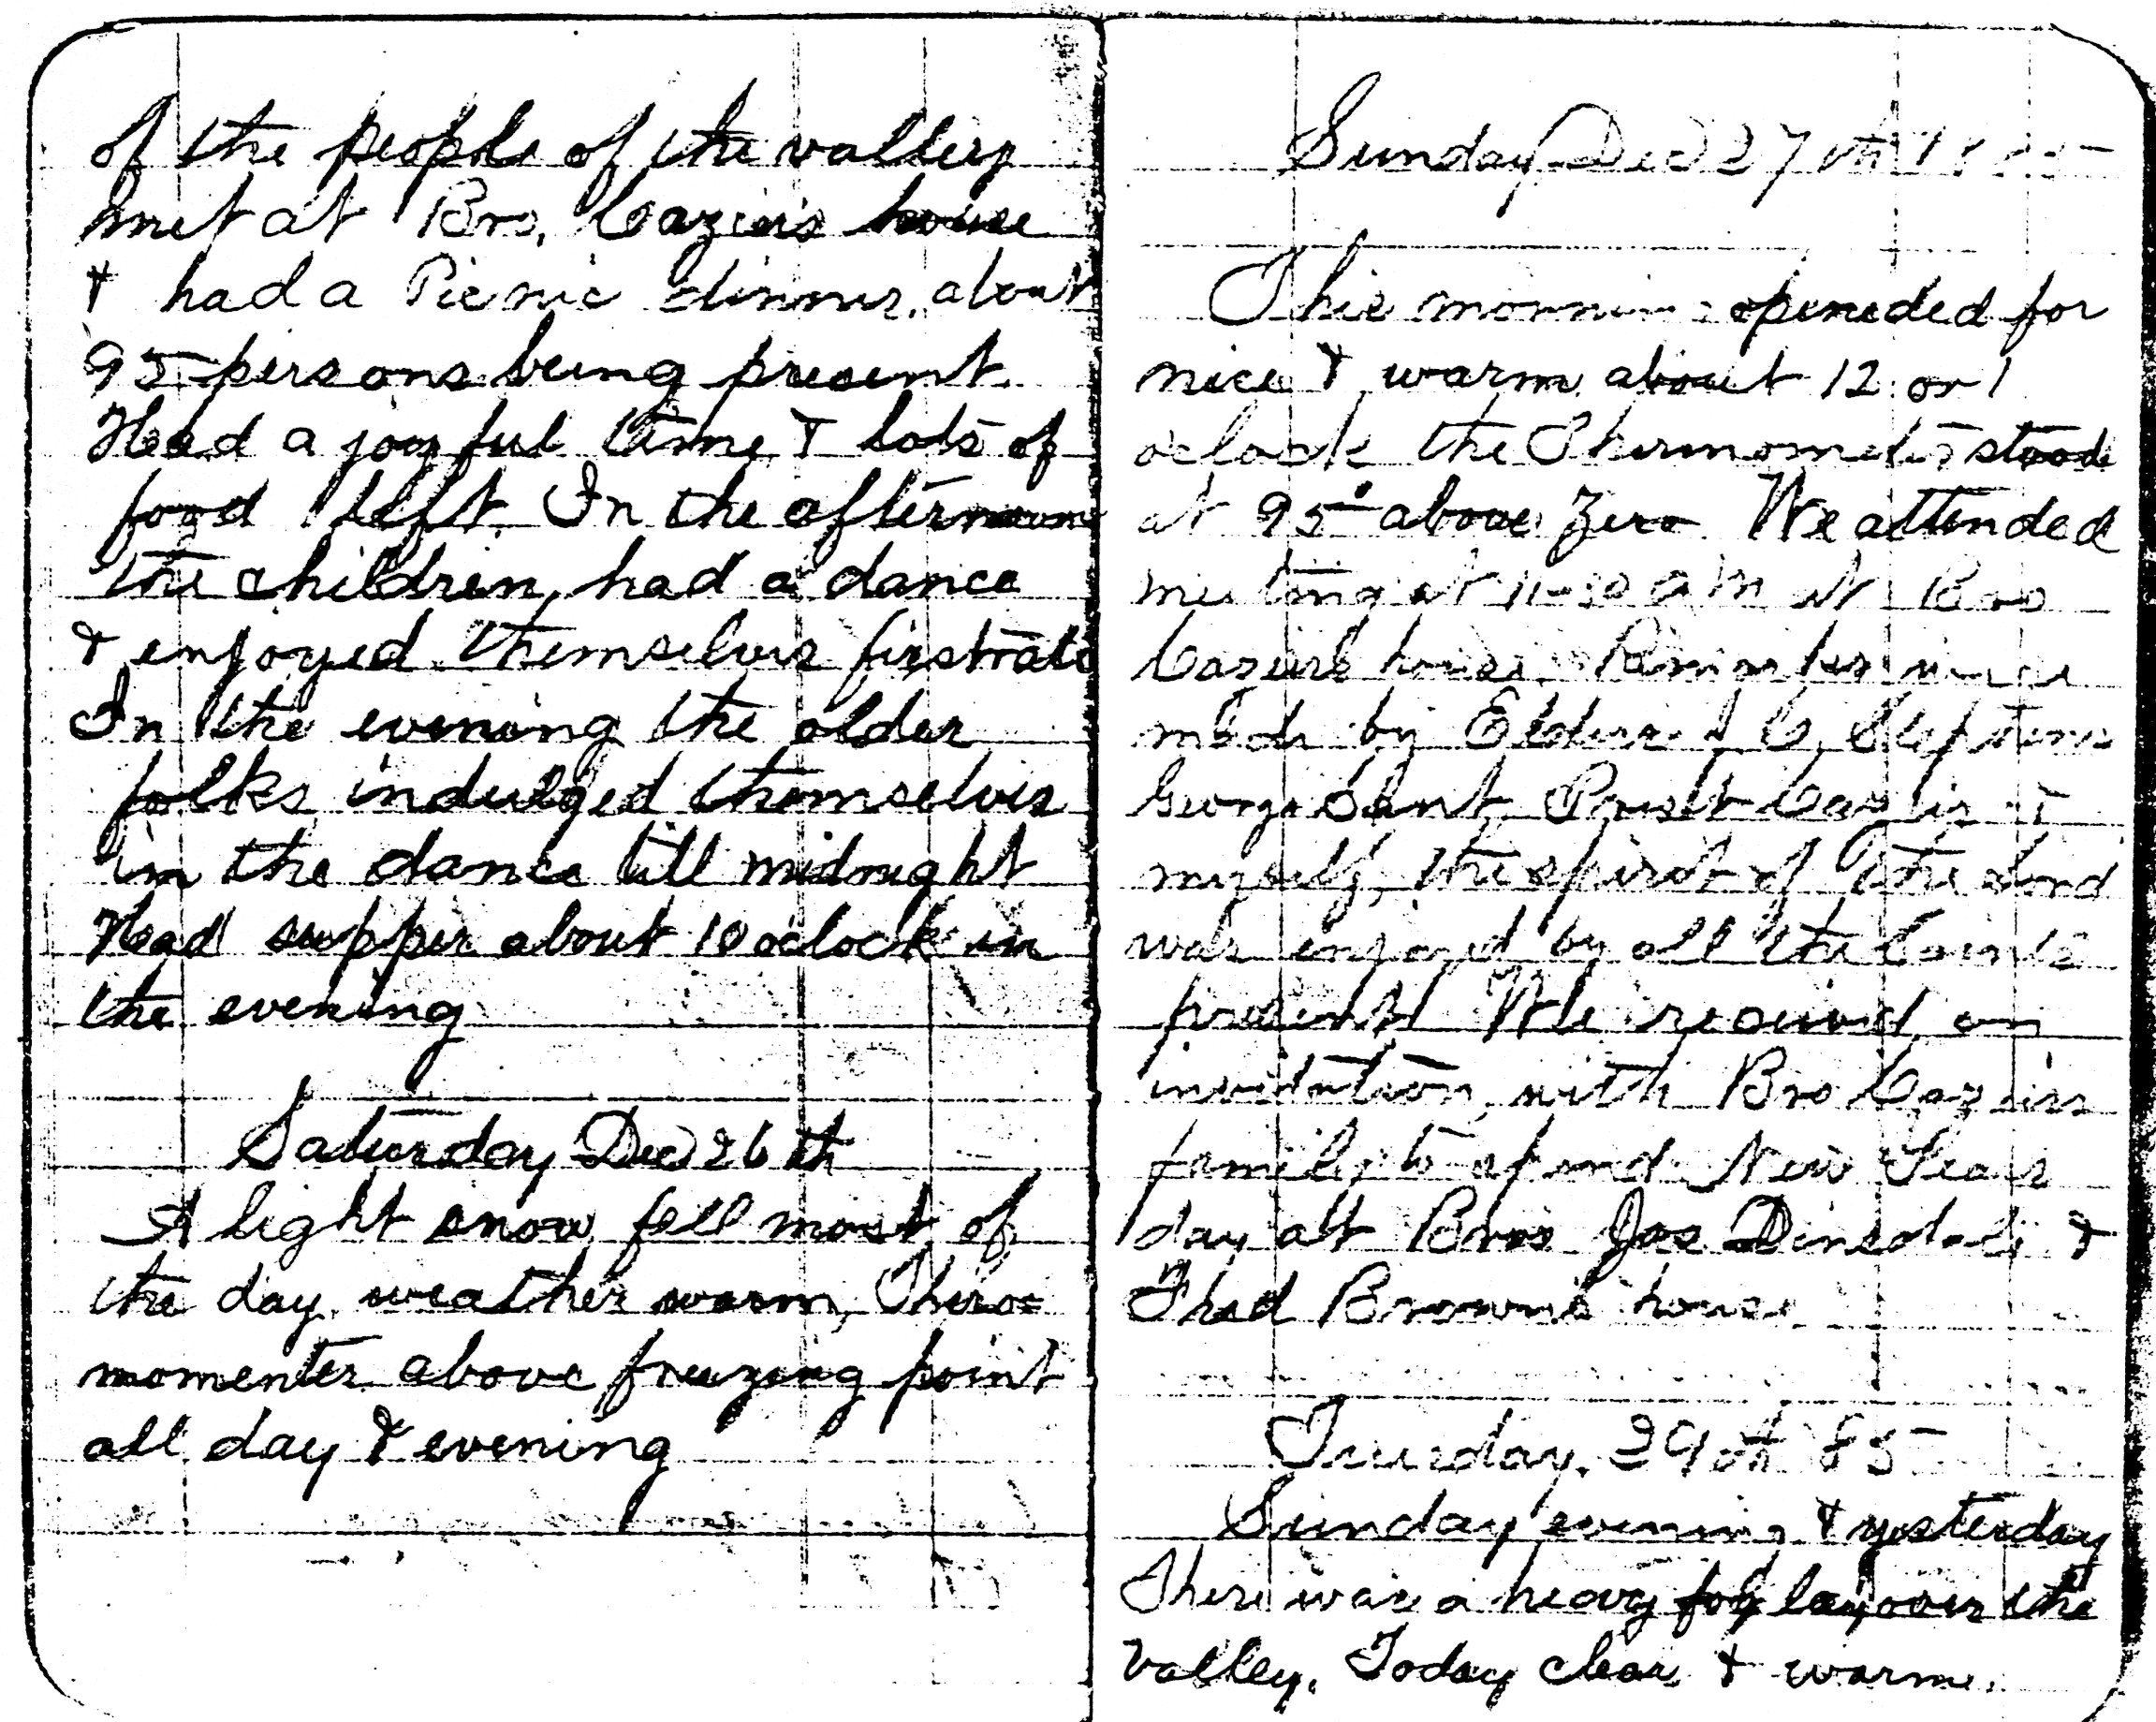 of the people of the valley
met at Bro. Cazier's house
& had a Picnic dinner. about
95 persons being present.
Had a joyful time & lots of
food left. In the afternoon
the children had a dance
& enjoyed themselves firstrate
In the evening the older
folks indulged themselves
in the dance till midnight
Had supper about 10 oclock in
the evening
Saturday Dec 26th
A light snow fell most of
the day. weather warm, Thero=
momenter above freezing point
all day & evening
Sunday Dec 27th 1885
This morning openeded for
nice & warm about 12 or 1
oclock the Thermometer stood
at 95° above Zero We attended
meeting at 11-30 am at Bro
Caziers house. Remarks were
made by Elders
George Prest Cazier &
myself, the spirit of the Lord
was enjoyed by all the Saints
present We received an
invitation with Bro Caziers
family to spend New Years
day att Bros Jos Dinsdale &
Thad Brown's house
Tuesday. 29th 85
Sunday evening & yesterday
There was a heavy fog lay over the
valley. Today clear & warm.